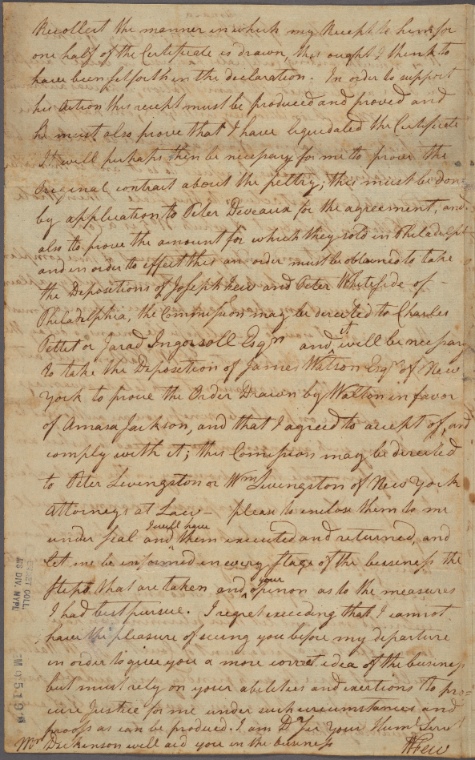 Recollect the manner in which my Receipt to him for
one half of the Certificate is drawn this ought I think to
have been set forth in the declaration. In order to support
his action this receipt must be produced and proved and
he must also prove that I have liquidated the Certificate
It will perhaps then be necessary for me to prove the
Original contract about the peltry; this must be done
by application to Peter Deveaux for the agreement, and
also to prove the amount for which they sold in Philadelph
and in order to effect this an order must be obtained to take
the Depositions of Joseph Few and Peter Whiteside of
Philadelphia, the Commission may be directed to Charles
Pettet or Jarad Ingersoll Esqrs and it will be necessary
to take the Deposition of James Watson Esqr of New
York to prove the Order Drawn by Walton in favor
of Amasa Jackson, and that I agreed to accept of, and
comply with it; this Comission may be directed
to Peter Livingston or Wm Livingston of New York
Attorneys at Law – please to enclose them to me
under seal and I will have them executed and returned, and
let me be informed in every stage of the bussiness the
steps that are taken and your opinon as to the measures
I had best pursue. I regret exceeding that I cannot
have the pleasure of seeing you before my departure
in order to give you a more correct idea of the business
but must rely on your abilities and exertions to pro
cure Justice for me under such circumstances and
proofs as can be produced. I am Dr Sir your Humle Servt
Mr Dickinson will aid you in the business
W Few
EMMET COLL.
MS DIV. NYPL